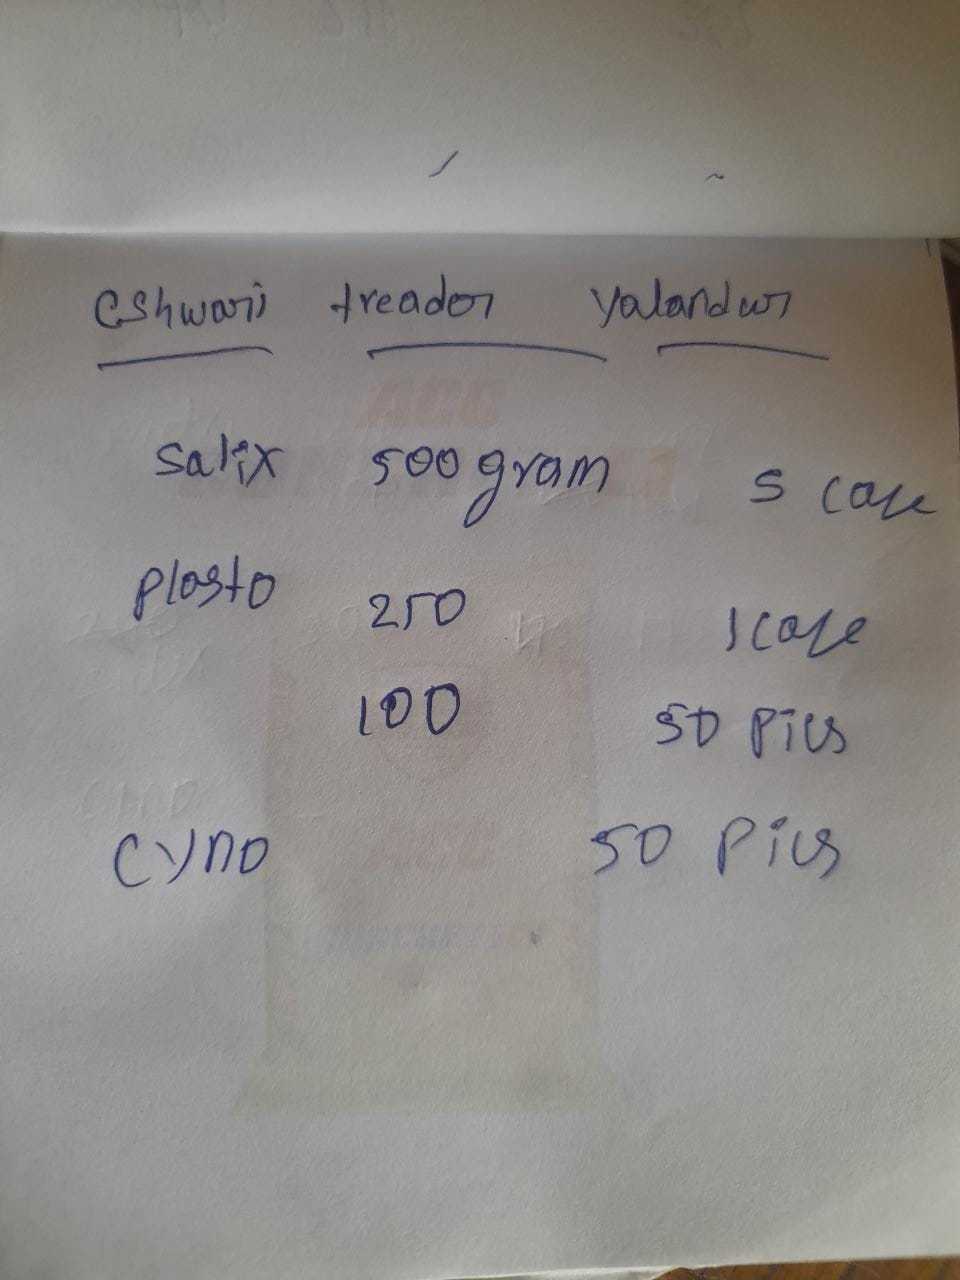 Eshwari treador Yalandur
Salix 500 gram 5 case
Plasto 250 1 case
100 50 Pics
Cyno 50 Pics